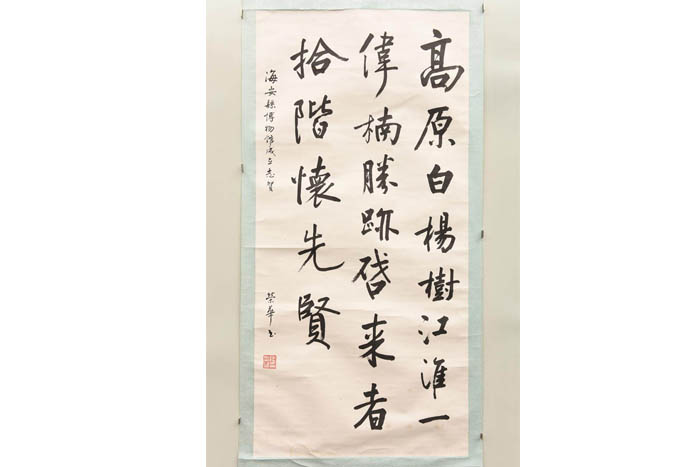 高原白楊樹江淮一
偉楠勝跡啓来者
拾階懷先賢
海安縣博物館成立志賀
榮華书